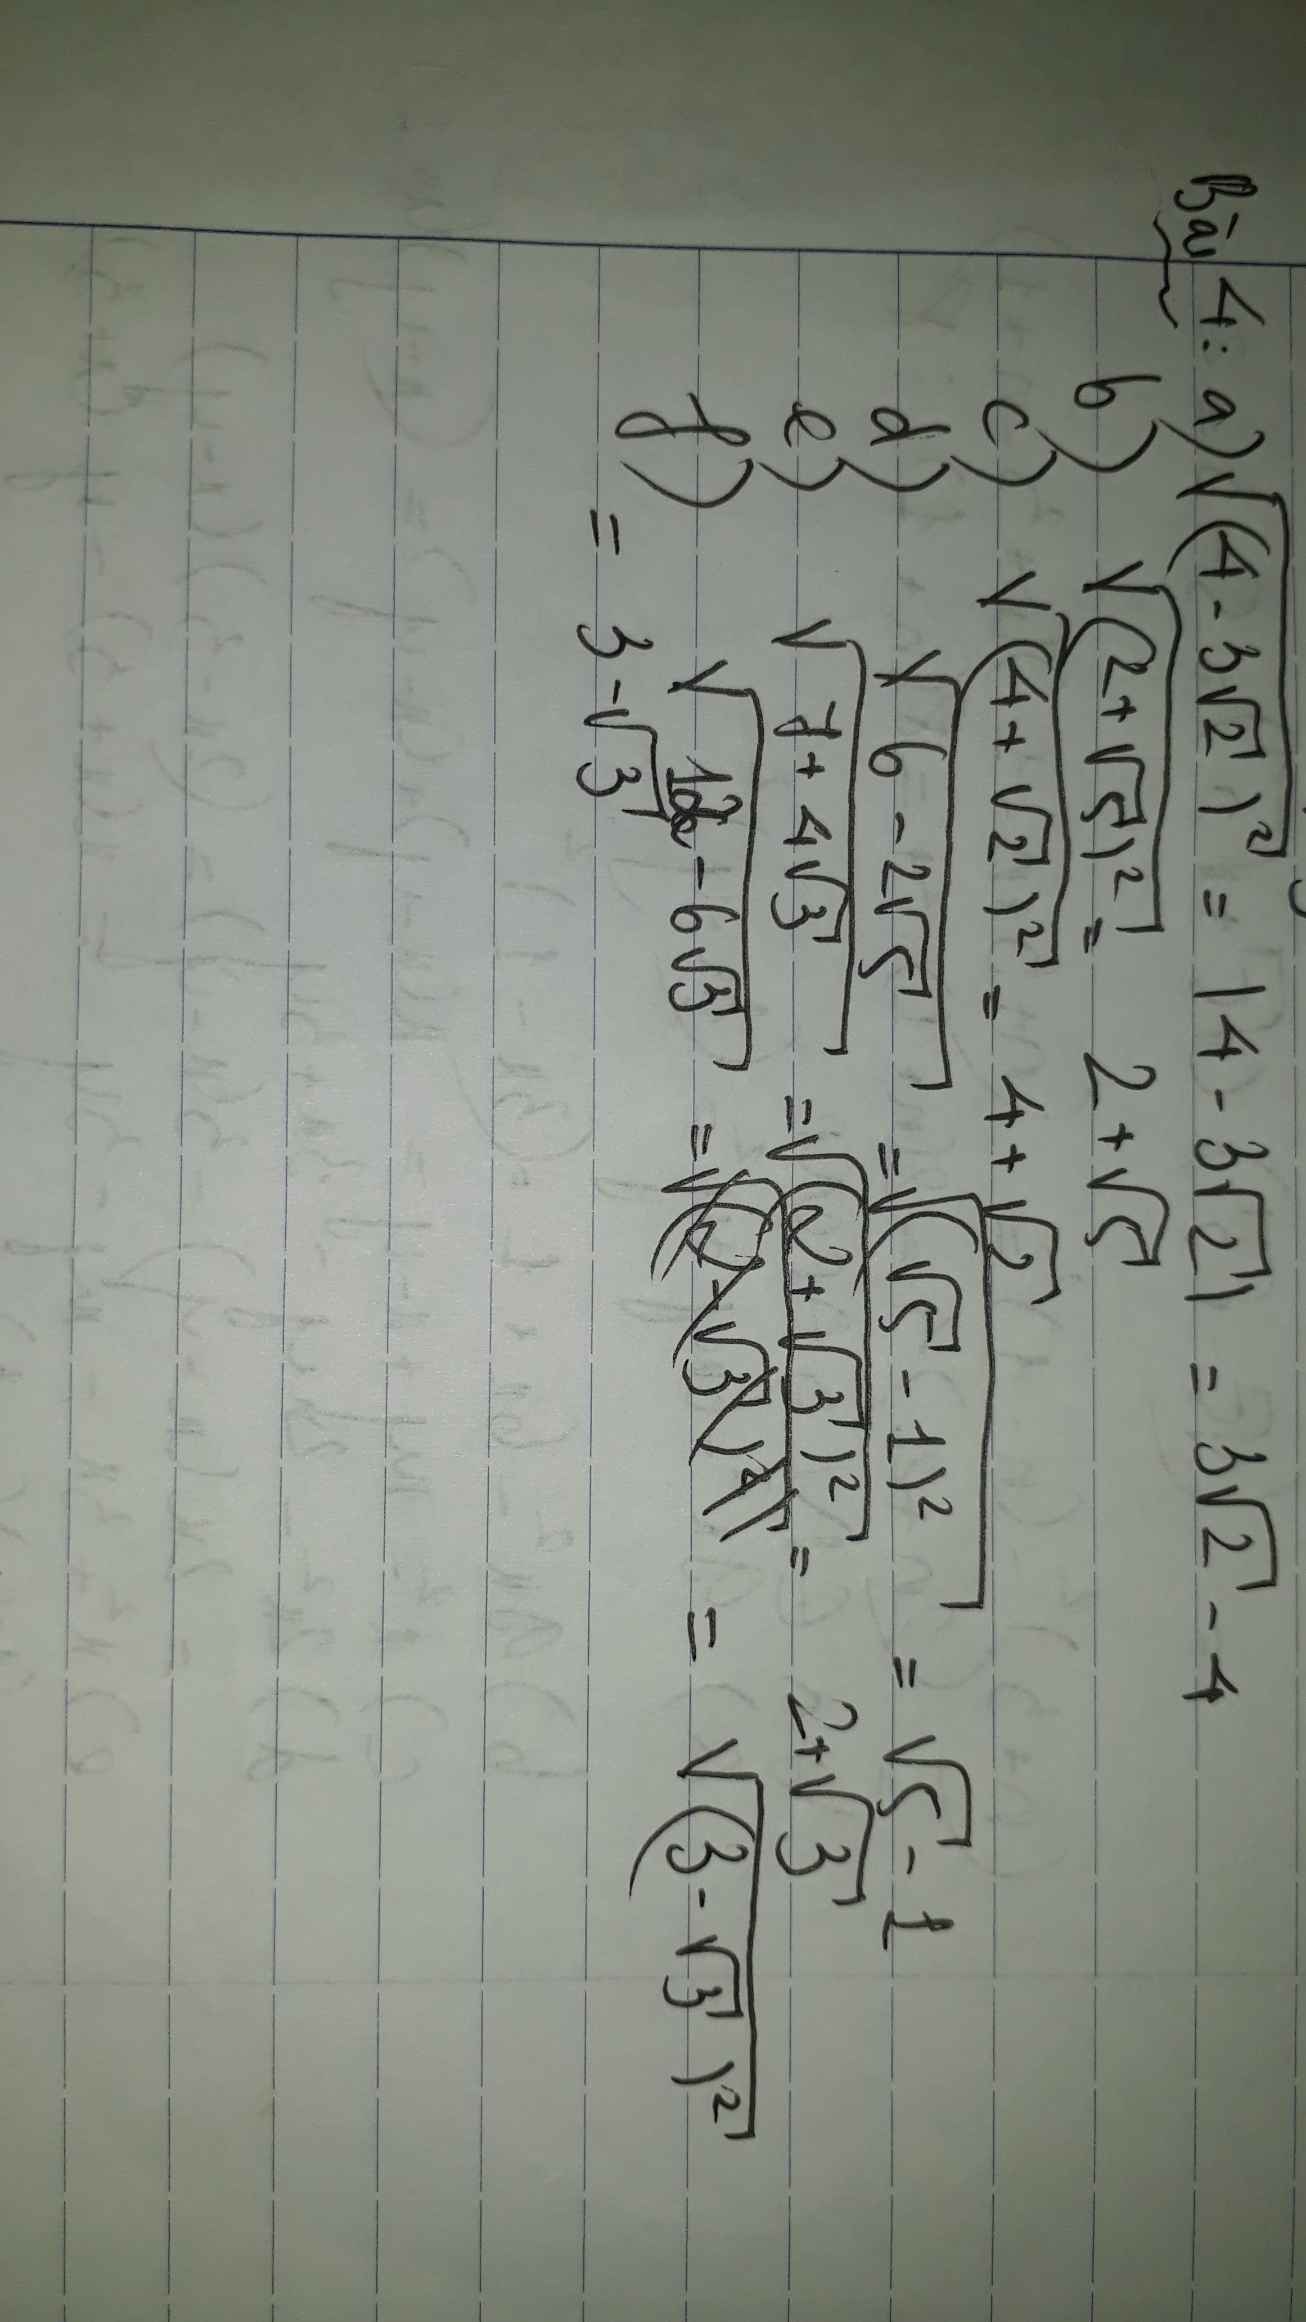 Bài 4: a) √(4-3√2)² = |4-3√2| = 3√2 - 4
b) √(2+√5)² = 2+√5
c) √(4+√2)² = 4+√2
d) √6-2√5 = √(√5-1)² = √5-1
e) √7+4√3 = √(2+√3)² = 2+√3
f) √12-6√3 = = √(3-√3)²
= 3-√3